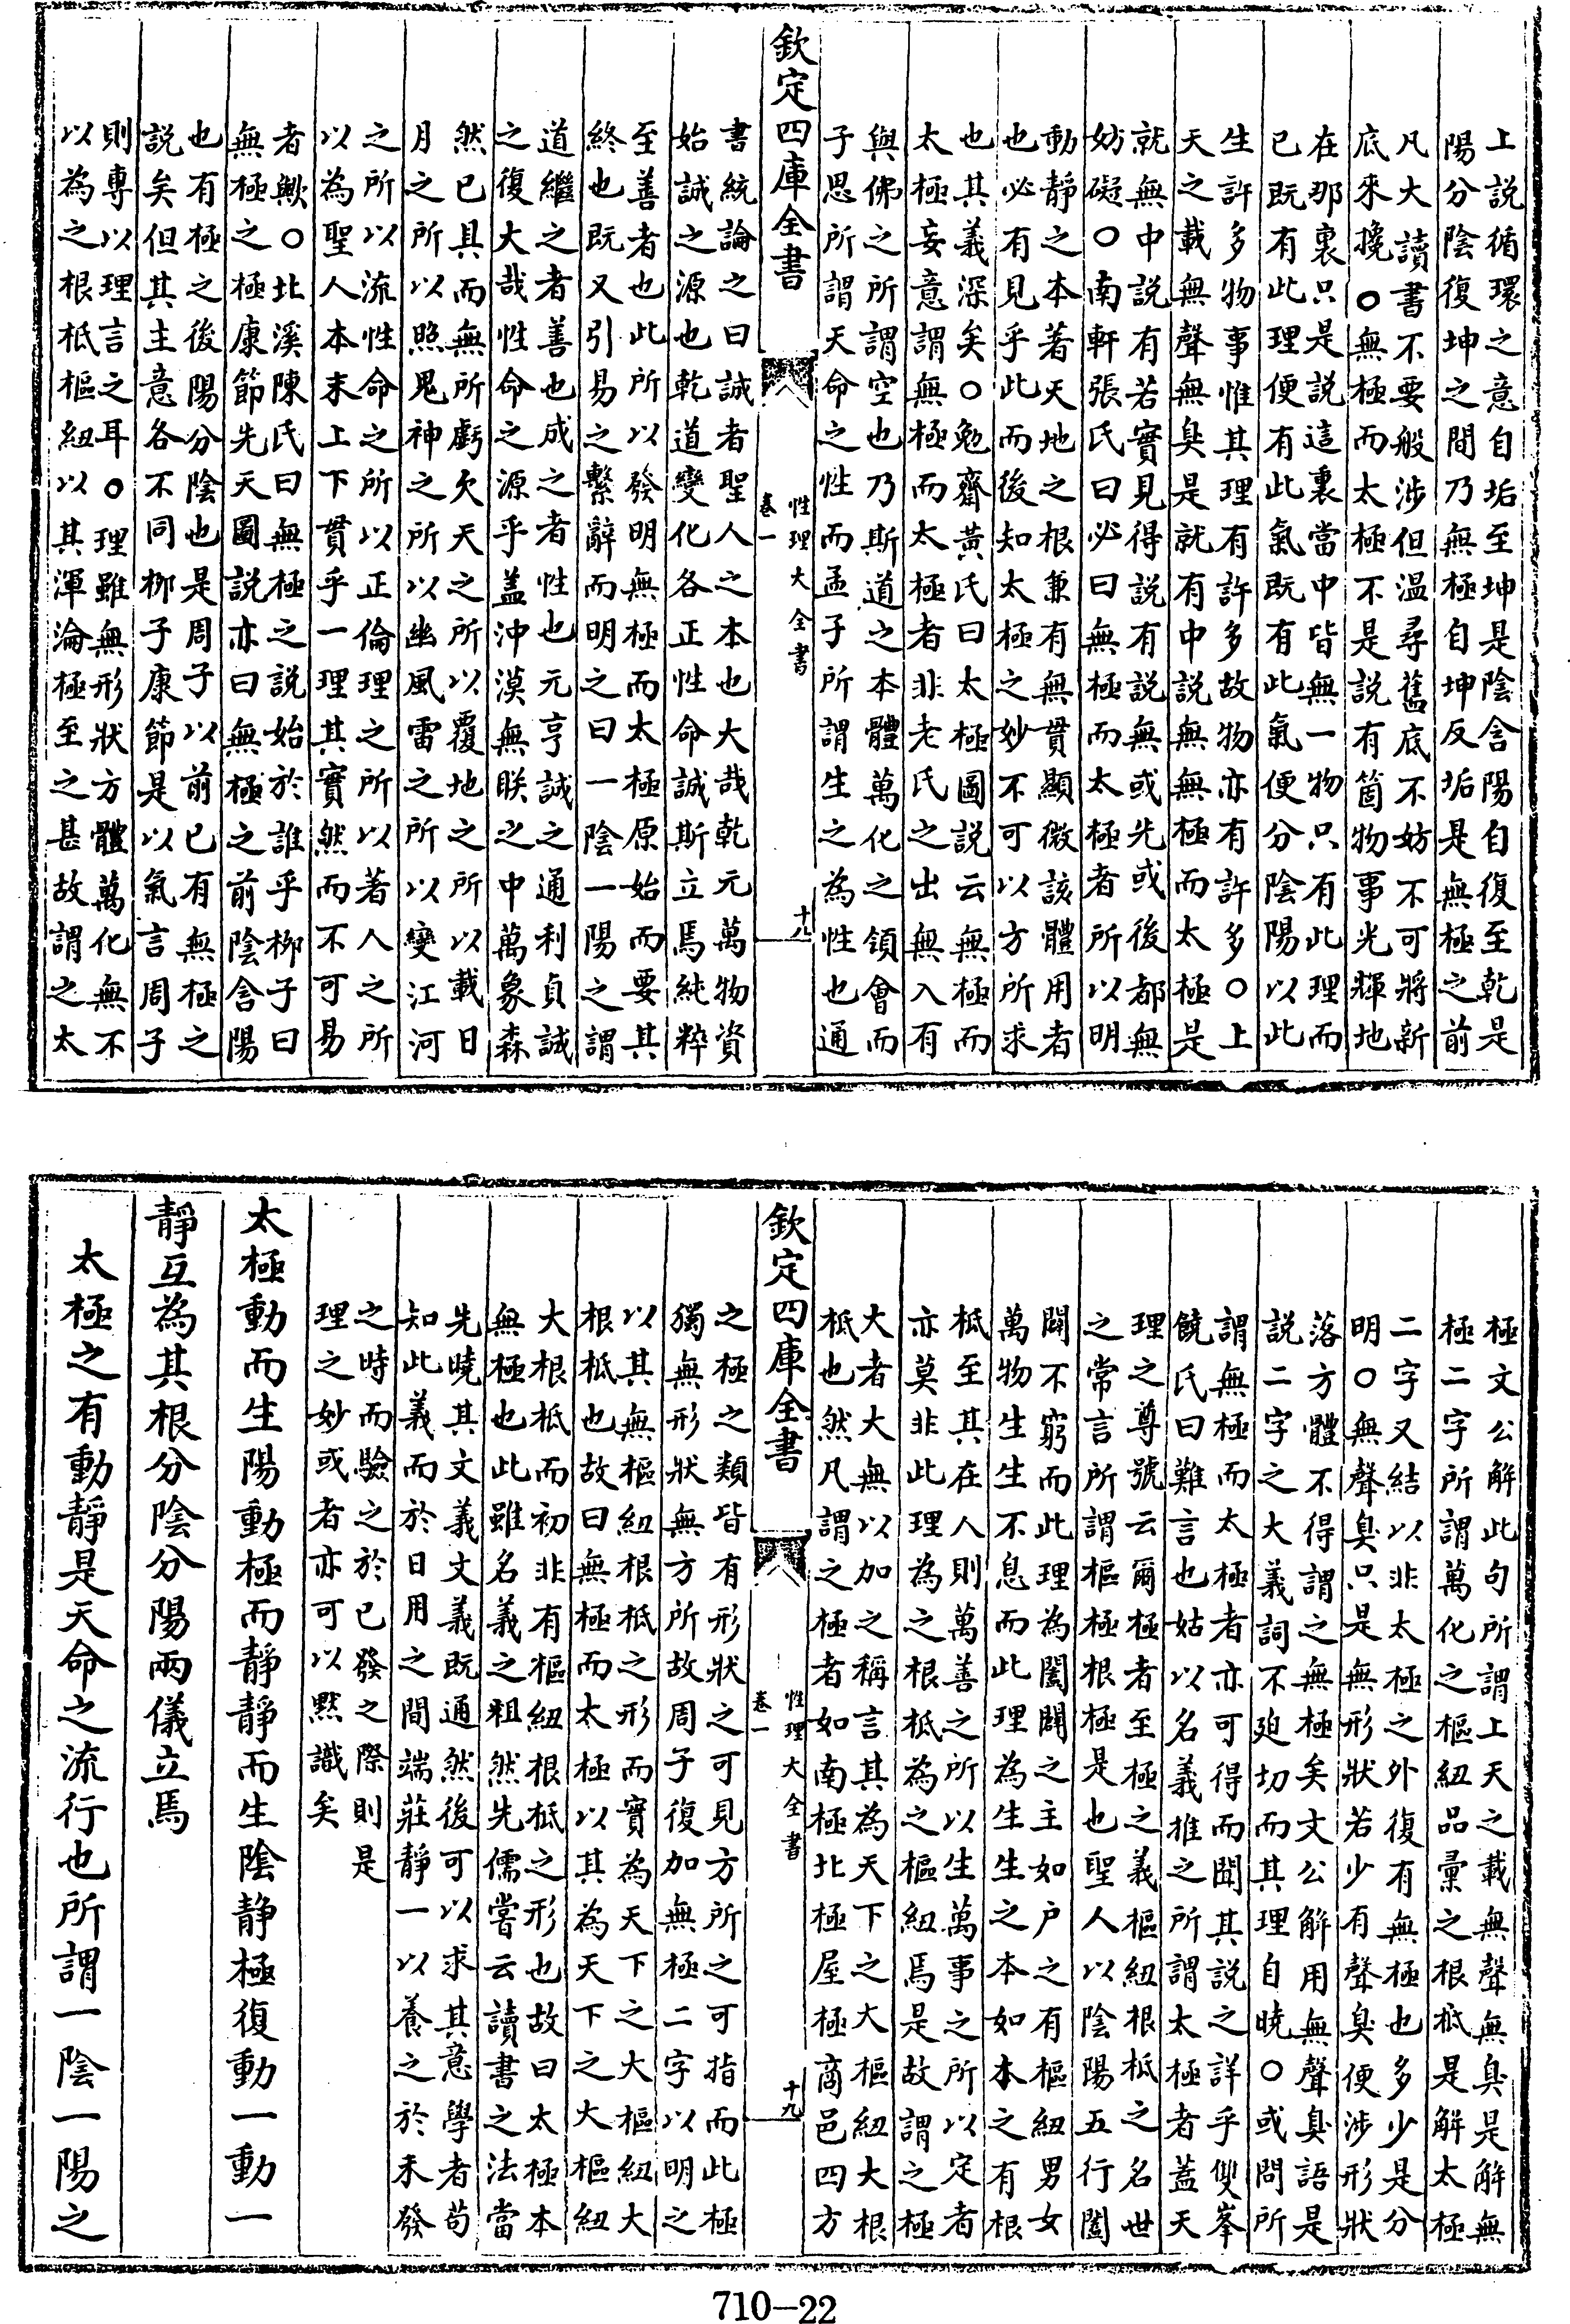 上説循環之意自垢至坤是陰含陽自復至乾是
陽分陰復坤之間乃無極自坤反垢是無極之前
凡大讀書不要般涉但温尋舊底不妨不可將新
底來攙○無極而太極不是説有箇物事光輝地
在那裏只是説這裏當中皆無一物只有此理而
已既有此理便有此氣既有此氣便分陰陽以此
生許多物事惟其理有許多故物亦有許多○上
天之載無聲無臭是就有中説無無極而太極是
就無中説有若實見得説有説無或先或後都無
妨礙○南軒張氏曰必曰無極而太極者所以明
動靜之本著天地之根兼有無貫顯微該體用者
也必有見乎此而後知太極之妙不可以方所求
也其義深矣○勉齋黄氏曰太極圖説云無極而
太極妄意謂無極而太極者非老氏之出無入有
與佛之所謂空也乃斯道之本體萬化之領會而
子思所謂天命之性而孟子所謂生之為性也通
欽定四庫全書
性理大全書
卷一
十八
書統論之曰誠者聖人之本也大哉乾元萬物資
始誠之源也乾道變化各正性命誠斯立焉純粹
至善者也此所以發明無極而太極原始而要其
終也既又引易之繫辭而明之曰一陰一陽之謂
道繼之者善也成之者性也元亨誠之通利貞誠
之復大哉性命之源乎盖沖漠無眹之中萬象森
然已具而無所虧欠天之所以覆地之所以載日
月之所以照鬼神之所以幽風雷之所以變江河
之所以流性命之所以正倫理之所以著人之所
以為聖人本末上下貫乎一理其實然而不可易
者歟○北溪陳氏曰無極之説始於誰乎柳子曰
無極之極康節先天圖説亦曰無極之前陰含陽
也有極之後陽分陰也是周子以前已有無極之
説矣但其主意各不同柳子康節是以氣言周子
則專以理言之耳○理雖無形狀方體萬化無不
以為之根柢樞紐以其渾淪極至之甚故謂之太
極文公解此句所謂上天之載無聲無臭是解無
極二字所謂萬化之樞紐品彙之根柢是解太極
二字又結以非太極之外復有無極也多少是分
明○無聲臭只是無形狀若少有聲臭便涉形狀
落方體不得謂之無極矣文公解用無聲臭語是
説二字之大義詞不廹切而其理自曉○或問所
謂無極而太極者亦可得而聞其説之詳乎雙峯
饒氏曰難言也姑以名義推之所謂太極者蓋天
理之尊號云爾極者至極之義樞紐根柢之名世
之常言所謂樞極根極是也聖人以陰陽五行闔
闢不窮而此理為闔闢之主如户之有樞紐男女
萬物生生不息而此理為生生之本如本之有根
柢至其在人則萬善之所以生萬事之所以定者
亦莫非此理為之根柢為之樞紐焉是故謂之極
大者大無以加之稱言其為天下之大樞紐大根
柢也然凡謂之極者如南極北極屋極商邑四方
欽定四庫全書
性理大全書
卷一
十九
之極之類皆有形狀之可見方所之可指而此極
獨無形狀無方所故周子復加無極二字以明之
以其無樞紐根柢之形而實為天下之大樞紐大
根柢也故曰無極而太極以其為天下之大樞紐
大根柢而初非有樞紐根柢之形也故曰太極本
無極也此雖名義之粗然先儒嘗云讀書之法當
先曉其文義文義既通然後可以求其意學者苟
知此義而於日用之間端莊靜一以養之於未發
之時而驗之於已發之際則是
理之妙或者亦可以黙識矣
太極動而生陽動極而靜靜而生陰靜極復動一動一
靜互為其根分陰分陽兩儀立焉
太極之有動靜是天命之流行也所謂一陰一陽之
710-22